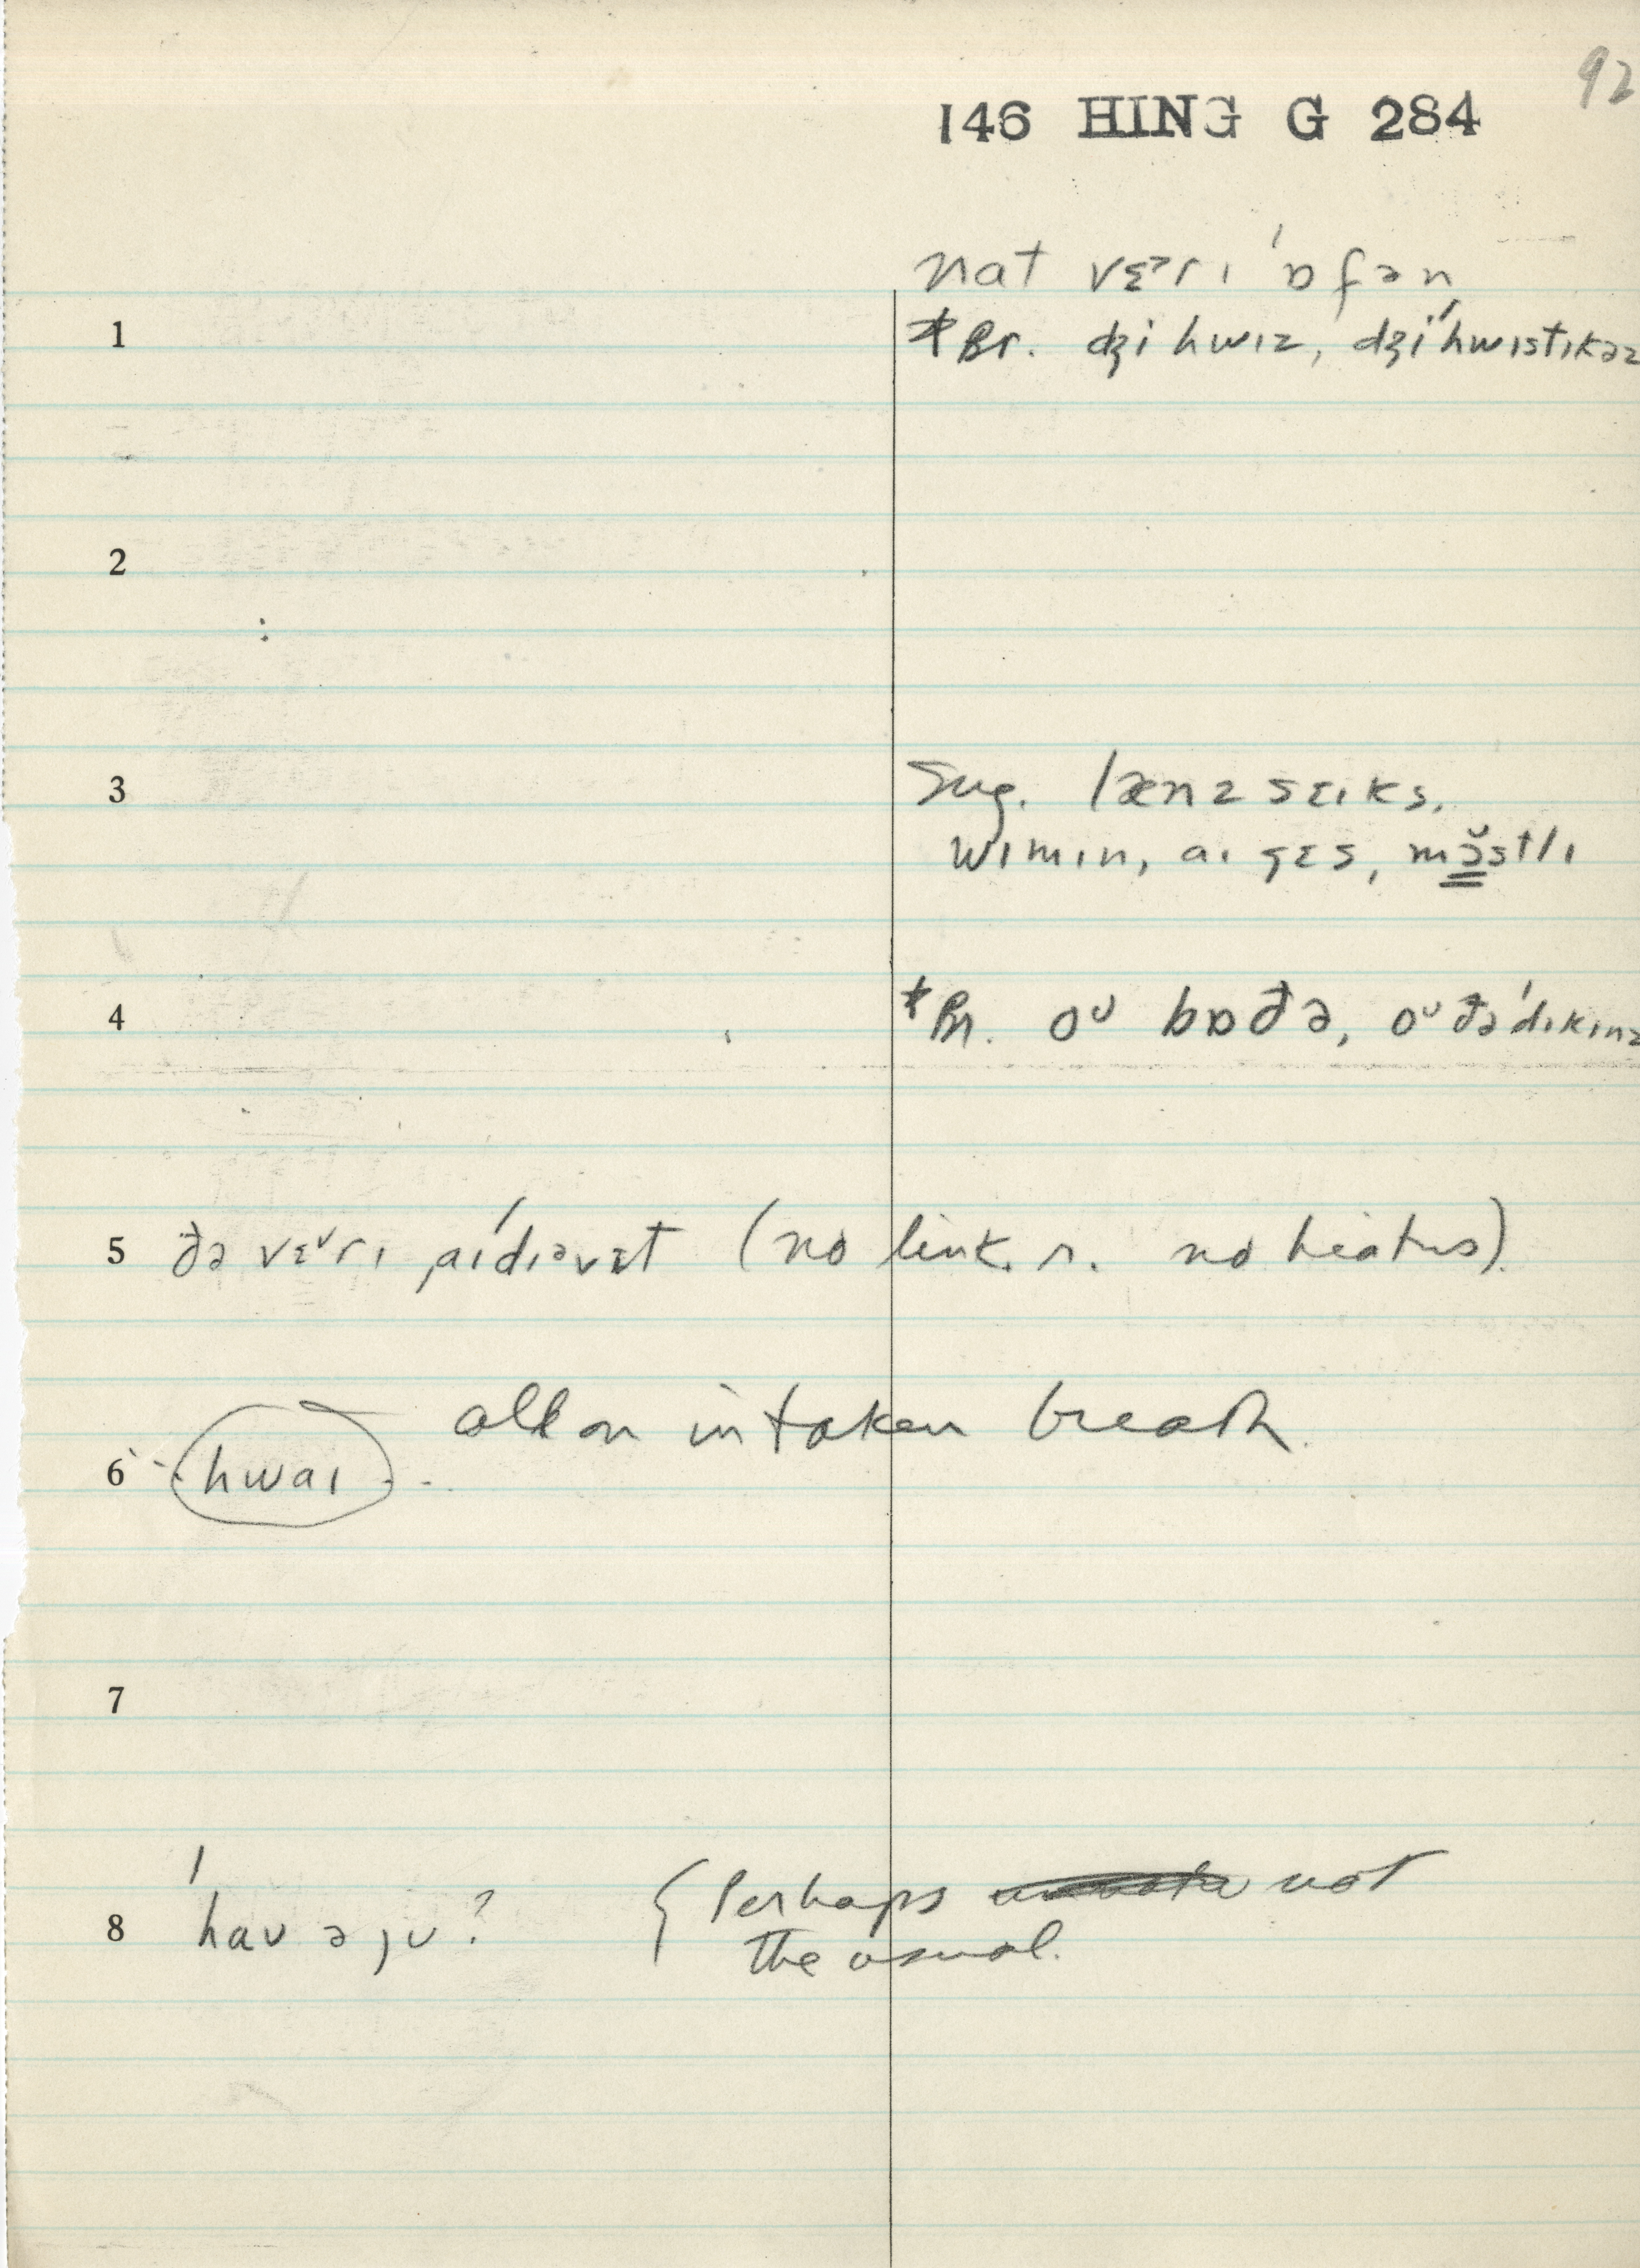 92
146 HING G 284
nat vɛᵊrɪ ˈɒfən
1 *Br. dʒi hwɪz, dʒiˈhwɪstɪkəz
2
3 Sug. lænz sɛɪks,
wɪmɪn, aɪ ʒɛs, mɔ̆stlɪ
4 *Br. oᴜ bɒðə, oᴜ ðəˈdɪkɪnz
5 ðə vɛᵛrɪ ˌaɪˈdɪəvɛt (no link. r. no hiatus).
all on intaken breath.
6 hwaɪ
7
8 ˈhaʊ ə jʊ? {Perhaps not
the usual.